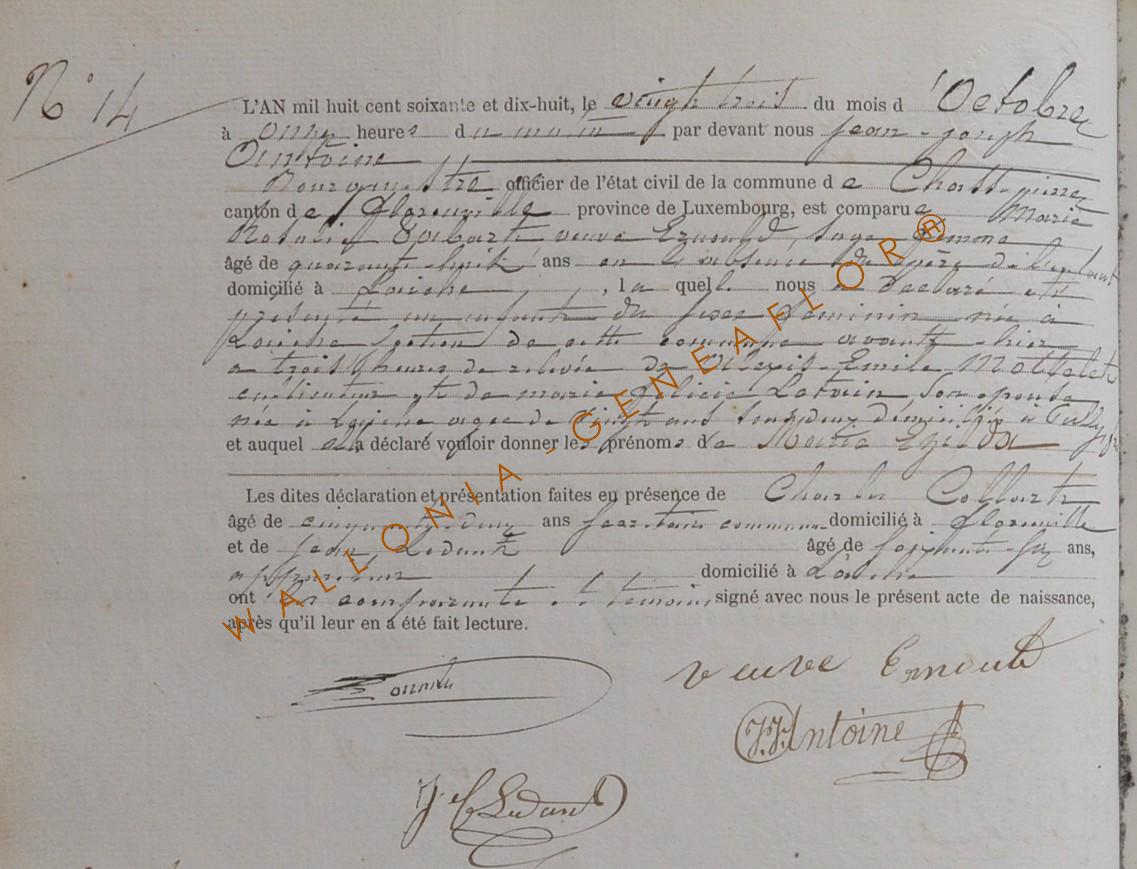 N° 14
L'AN mil huit cent soixante et dix-huit, le vingt trois du mois d'Octobre
à onze heures du matin par devant nous Jean-Joseph
Antoine
Bourgmestre officier de l'état civil de la commune de Chassepierre
canton de Florenville province de Luxembourg, est comparue Marie
Rosalie veuve sage femme
âgé de quarante huit ans en l'absence du père de l'enfant
domicilié à Laiche, laquelle nous a déclaré et
présenté un enfant du sexe féminin née à
Laiche section de cette commune avant hier
à trois heures de relevée de Alexis Emile Mottelet
cultivateur et de marie Félicie son épouse
née à Laiche agée de vingt ans tous deux domiciliés à
et auquel elle a déclaré vouloir donner les prénoms de Marie
Les dites déclaration et présentation faites en présence de Charles Collart
âgé de cinquante deux ans secrétaire communal domicilié à Florenville
et de Ledant âgé de soixante six ans,
domicilié à Laiche
ont la comparante et témoins signé avec nous le présent acte de naissance,
après qu'il leur en a été fait lecture.
veuve
J.J. Antoine
Ledant
WALLONIA - GENEAFLOR®